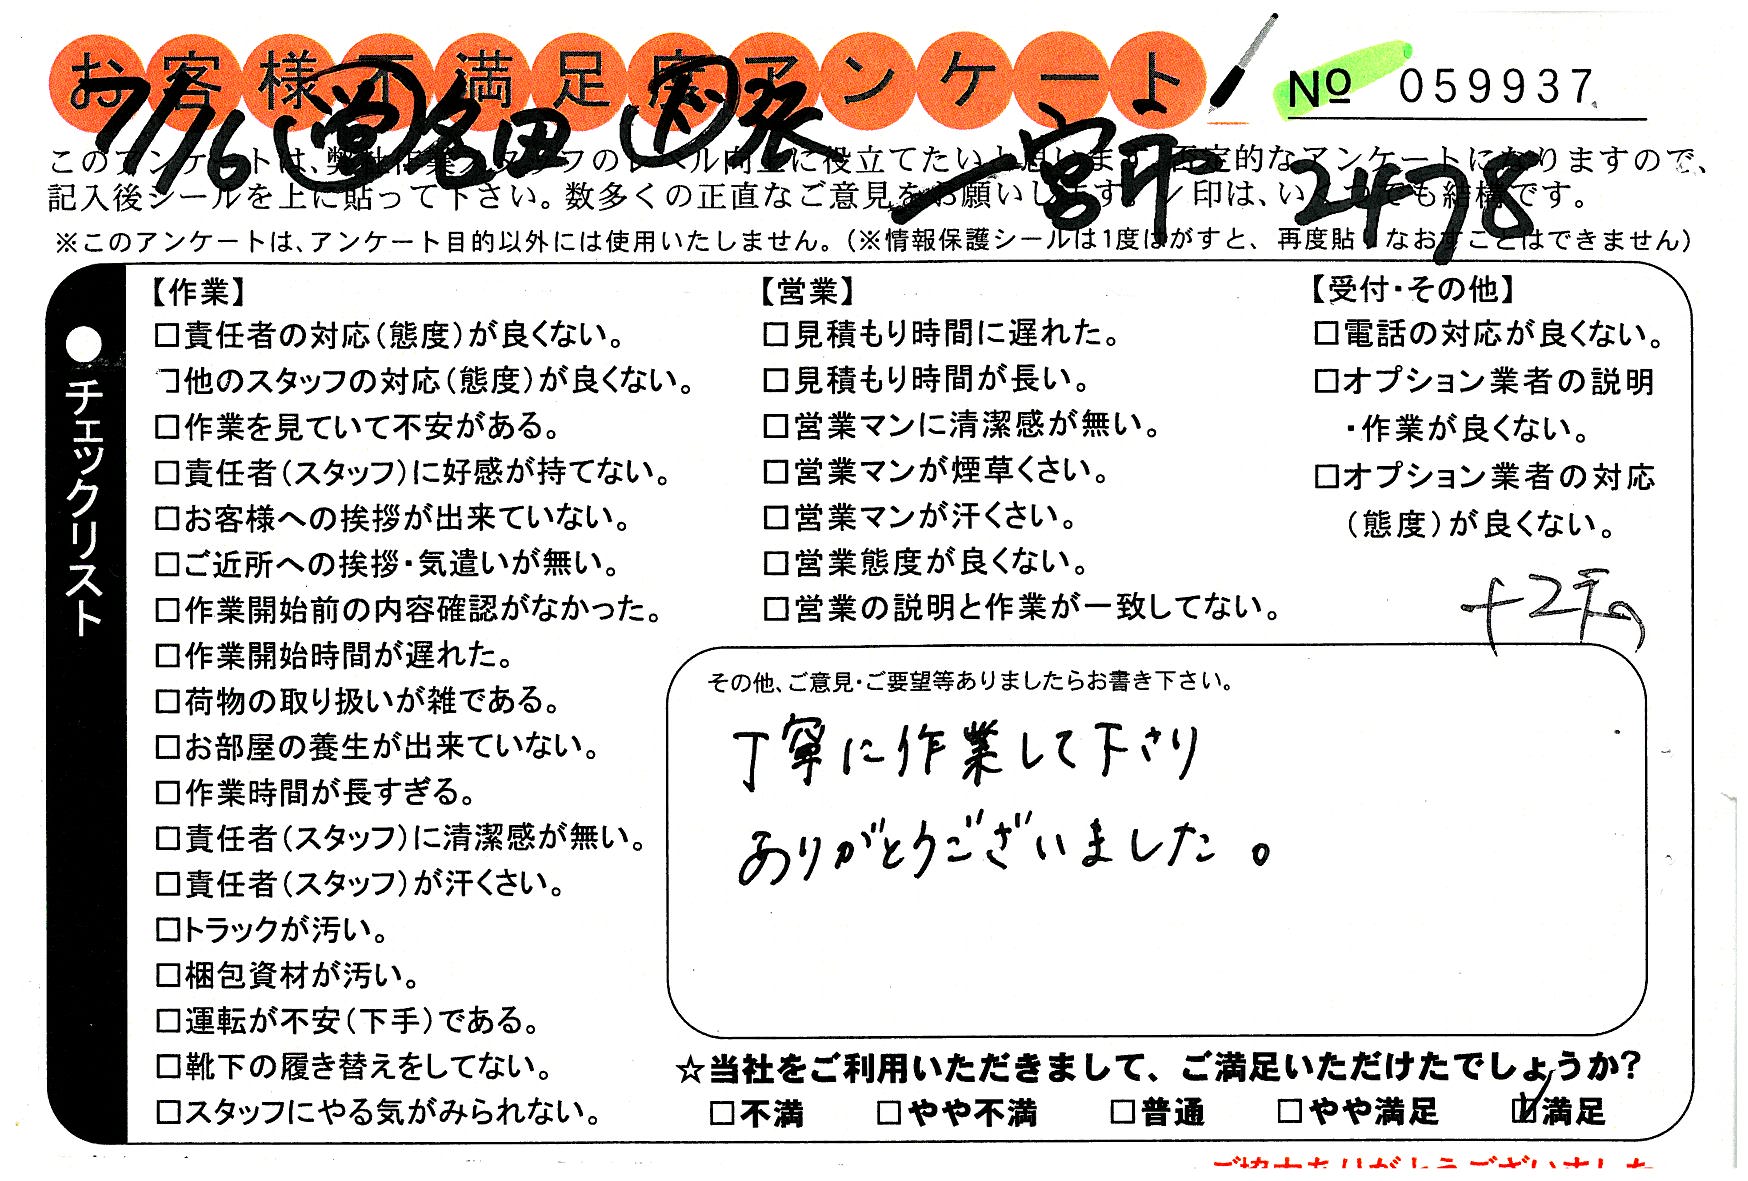 お客様不満足度アンケート
№ 059937
7/16 営 名田 下 張
一宮市 2478
このアンケートは、弊社作業スタッフのレベル向上に役立てたいと思います。否定的なアンケートになりますので、
記入後シールを上に貼って下さい。数多くの正直なご意見をお願いします。✓印は、いくつでも結構です。
※このアンケートは、アンケート目的以外には使用いたしません。（※情報保護シールは1度はがすと、再度貼りなおすことはできません）
●チェックリスト
【作業】
□責任者の対応（態度）が良くない。
□他のスタッフの対応（態度）が良くない。
□作業を見ていて不安がある。
□責任者（スタッフ）に好感が持てない。
□お客様への挨拶が出来ていない。
□ご近所への挨拶・気遣いが無い。
□作業開始前の内容確認がなかった。
□作業開始時間が遅れた。
□荷物の取り扱いが雑である。
□お部屋の養生が出来ていない。
□作業時間が長すぎる。
□責任者（スタッフ）に清潔感が無い。
□責任者（スタッフ）が汗くさい。
□トラックが汚い。
□梱包資材が汚い。
□運転が不安（下手）である。
□靴下の履き替えをしてない。
□スタッフにやる気がみられない。
【営業】
□見積もり時間に遅れた。
□見積もり時間が長い。
□営業マンに清潔感が無い。
□営業マンが煙草くさい。
□営業マンが汗くさい。
□営業態度が良くない。
□営業の説明と作業が一致してない。
【受付・その他】
□電話の対応が良くない。
□オプション業者の説明
・作業が良くない。
□オプション業者の対応
（態度）が良くない。
その他、ご意見・ご要望等ありましたらお書き下さい。
丁寧に作業して下さり
ありがとうございました。
☆当社をご利用いただきまして、ご満足いただけたでしょうか？
□不満 □やや不満 □普通 □やや満足 ☑満足
ご協力ありがとうございました